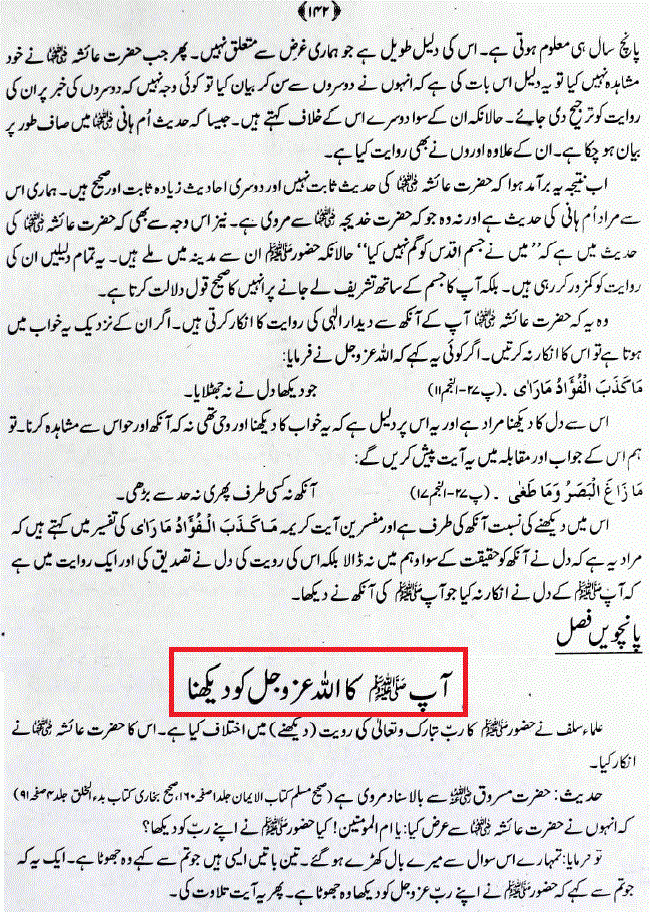 ﴿۱۴۲﴾
پانچ سال ہی معلوم ہوتی ہے۔ اس کی دلیل طویل ہے جو ہماری غرض سے متعلق نہیں۔ پھر جب حضرت عائشہ رضی اللہ عنہا نے خود
مشاہدہ نہیں کیا تو یہ دلیل اس بات کی ہے کہ انہوں نے دوسروں سے سن کر بیان کیا تو کوئی وجہ نہیں کہ دوسروں کی خبر پر ان کی
روایت کو ترجیح دی جائے۔ حالانکہ ان کے سوا دوسرے اس کے خلاف کہتے ہیں۔ جیسا کہ حدیث اُم ہانی رضی اللہ عنہا میں صاف طور پر
بیان ہو چکا ہے۔ ان کے علاوہ اوروں نے بھی روایت کیا ہے۔
اب نتیجہ یہ برآمد ہوا کہ حضرت عائشہ رضی اللہ عنہا کی حدیث ثابت نہیں اور دوسری احادیث زیادہ ثابت اور صحیح ہیں۔ ہماری اس
سے مراد اُم ہانی کی حدیث ہے اور نہ وہ جو کہ حضرت خدیجہ رضی اللہ عنہا سے مروی ہے۔ نیز اس وجہ سے بھی کہ حضرت عائشہ رضی اللہ عنہا کی
حدیث میں ہے کہ ’’میں نے جسم اقدس کو گم نہیں کیا‘‘ حالانکہ حضور ﷺ ان سے مدینہ میں ملے ہیں۔ یہ تمام دلیلیں ان کی
روایت کو کمزور کر رہی ہیں۔ بلکہ آپ کا جسم کے ساتھ تشریف لے جانے پر انہیں کا صحیح قول دلالت کرتا ہے۔
وہ یہ کہ حضرت عائشہ رضی اللہ عنہا آپ کے آنکھ سے دیدار الٰہی کی روایت کا انکار کرتی ہیں۔ اگر ان کے نزدیک یہ خواب میں
ہوتا ہے تو اس کا انکار نہ کرتیں۔ اگر کوئی یہ کہے کہ اللہ عزوجل نے فرمایا:
مَا كَذَبَ الْفُؤَادُ مَا رَاٰى۔ (پ ۲۷-النجم ۱۱) جو دیکھا دل نے نہ جھٹلایا۔
اس سے دل کا دیکھنا مراد ہے اور یہ اس پر دلیل ہے کہ یہ خواب کا دیکھنا اور وحی تھی نہ کہ آنکھ اور حواس سے مشاہدہ کرنا۔ تو
ہم اس کے جواب اور مقابلہ میں یہ آیت پیش کریں گے:
مَا زَاغَ الْبَصَرُ وَمَا طَغٰى۔ (پ ۲۷-النجم ۱۷) آنکھ نہ کسی طرف پھری نہ حد سے بڑھی۔
اس میں دیکھنے کی نسبت آنکھ کی طرف ہے اور مفسرین آیت کریمہ مَا كَذَبَ الْفُؤَادُ مَا رَاٰى کی تفسیر میں کہتے ہیں کہ
مراد یہ ہے کہ دل نے آنکھ کو حقیقت کے سوا وہم میں نہ ڈالا بلکہ اس کی رویت کی دل نے تصدیق کی اور ایک روایت میں ہے
کہ آپ ﷺ کے دل نے انکار نہ کیا جو آپ ﷺ کی آنکھ نے دیکھا۔
پانچویں فصل
آپ ﷺ کا اللہ عزوجل کو دیکھنا
علماء سلف نے حضور ﷺ کا ربّ تبارک وتعالیٰ کی رویت (دیکھنے) میں اختلاف کیا ہے۔ اس کا حضرت عائشہ رضی اللہ عنہا نے
انکار کیا۔
حدیث: حضرت مسروق رضی اللہ عنہ سے بالاسناد مروی ہے (صحیح مسلم کتاب الایمان جلد ۱ صفحہ ۱۶۰، صحیح بخاری کتاب بدء الخلق جلد ۴ صفحہ ۹۱)
کہ انہوں نے حضرت عائشہ رضی اللہ عنہا سے عرض کیا: یا ام المؤمنین! کیا حضور ﷺ نے اپنے ربّ کو دیکھا؟
تو فرمایا: تمہارے اس سوال سے میرے بال کھڑے ہو گئے۔ تین باتیں ایسی ہیں جو تم سے کہے وہ جھوٹا ہے۔ ایک یہ کہ
جو تم سے کہے کہ حضور ﷺ نے اپنے رب عزوجل کو دیکھا وہ جھوٹا ہے۔ پھر یہ آیت تلاوت کی۔